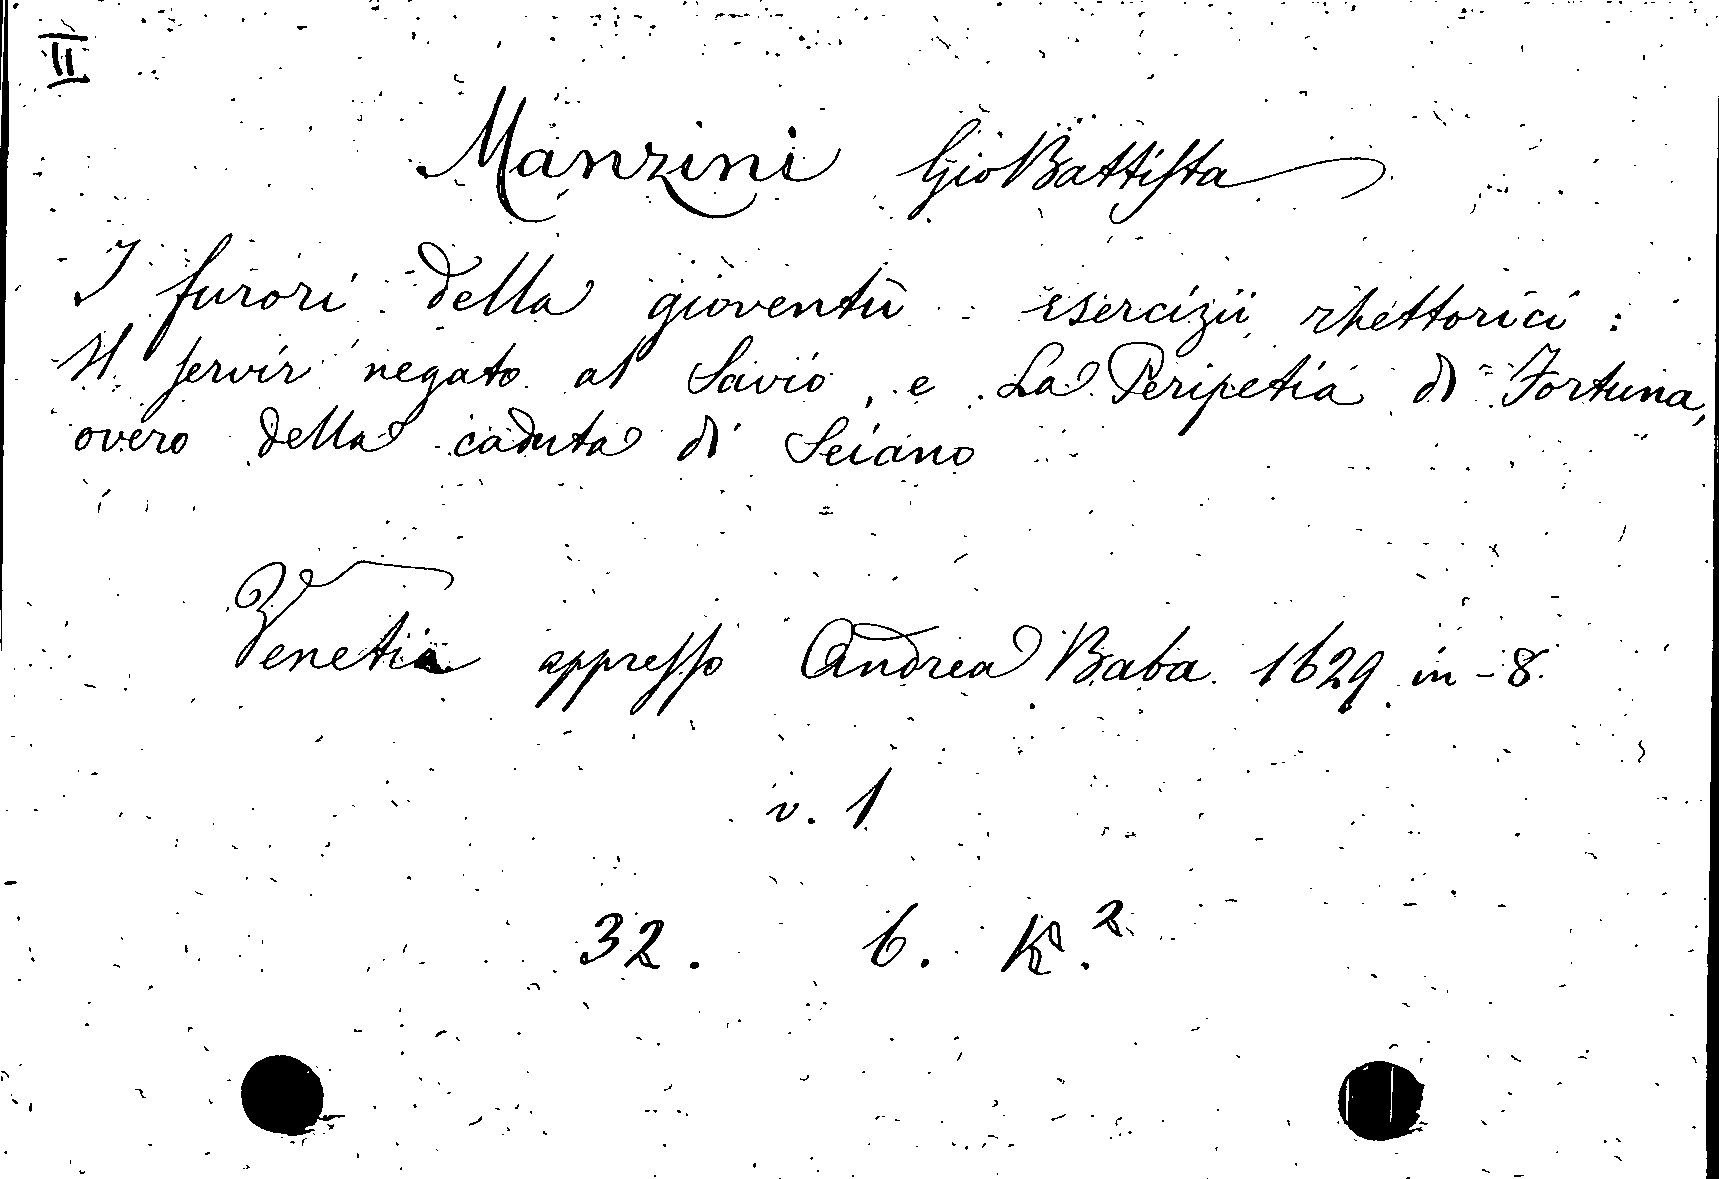 II
Manzini Gio Battista
I furori della gioventù esercizii rhettorici:
Il servir negato al Savio, e La Peripetia di Fortuna,
overo della caduta di Seiano
Venetia appresso Andrea Baba 1629 in-8.
v. 1
32. 6. K.2